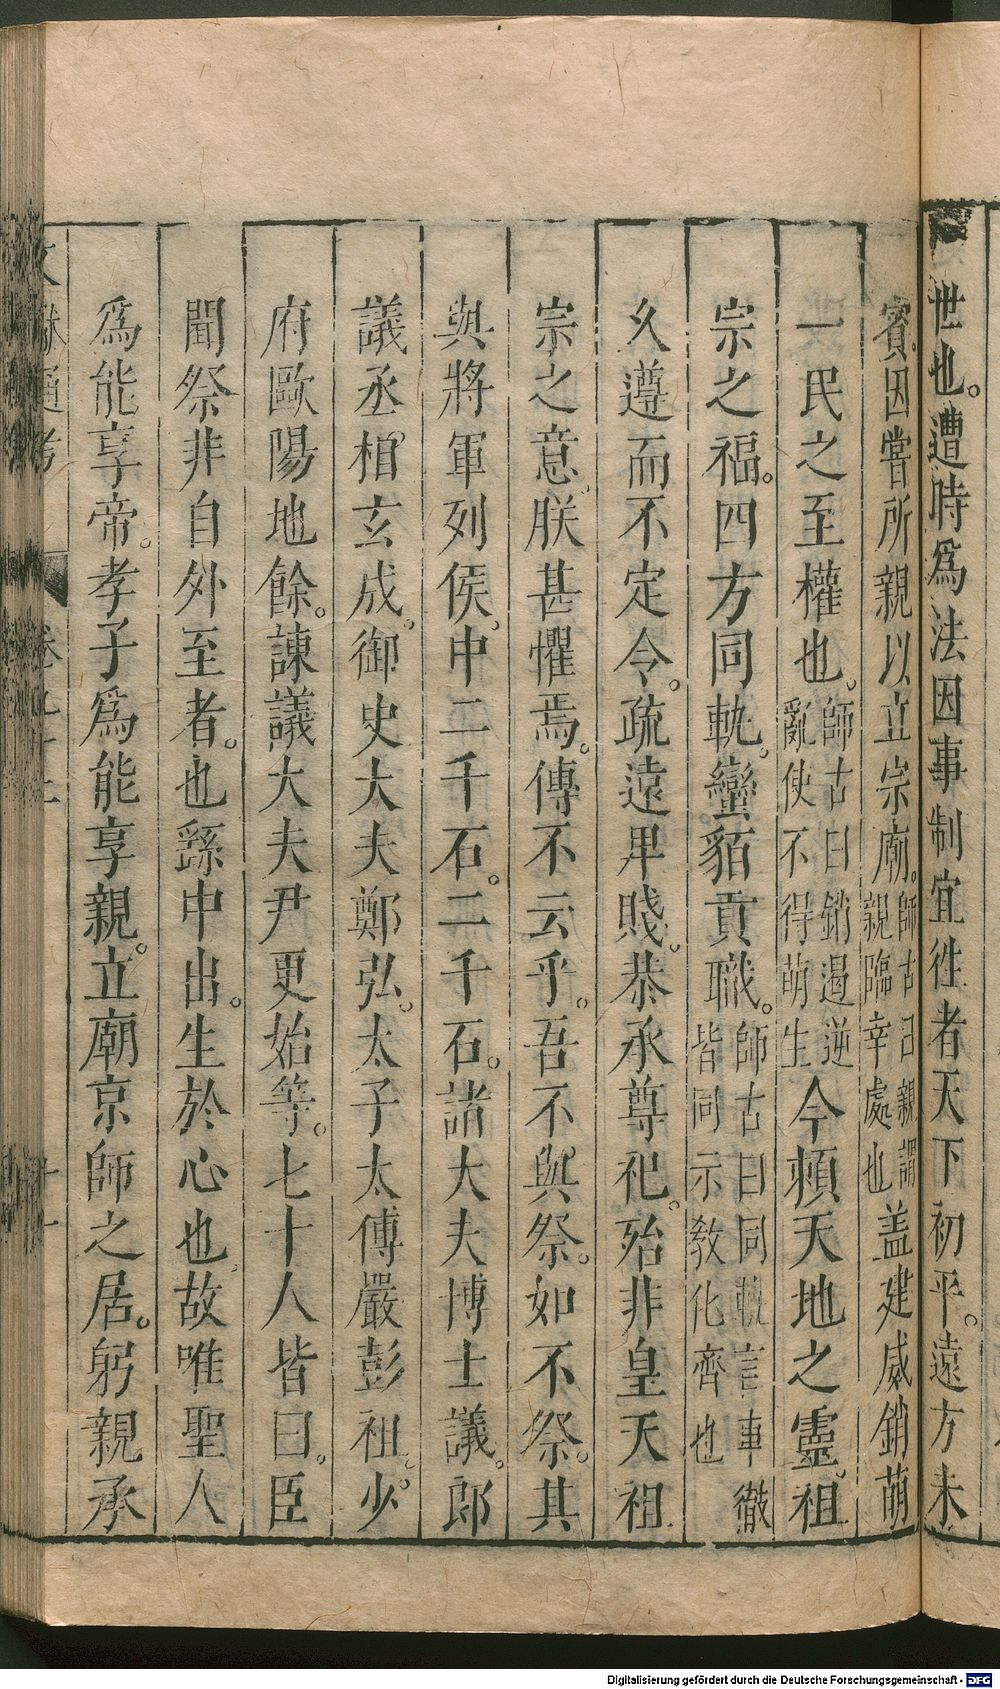 世也。遭時爲法因事制宜徃者天下初平。遠方未
賓因嘗所親以立宗廟。師古曰親謂親臨幸處也蓋建威銷萌
一民之至權也。師古曰銷遏逆亂使不得萌生今頼天地之靈。祖
宗之福。四方同軌。蠻貊貢職。師古曰同軌言車徹皆同示敎化齊也
久遵而不定令。疏遠𤰞賤。恭承尊祀。殆非皇天祖
宗之意。朕甚懼焉。傳不云乎。吾不與祭。如不祭。其
與將軍列侯。中二千石。二千石。諸大夫博士議。郎
議丞相玄成。御史大夫鄭弘。太子太傅嚴彭祖。少
府歐陽地餘。諫議大夫尹更始等。七十人皆曰。臣
聞祭非自外至者。也繇中出。生於心也故唯聖人
爲能享帝。孝子爲能享親。立廟京師之居。躬親承
文獻通考
Digitalisierung gefördert durch die Deutsche Forschungsgemeinschaft - DFG